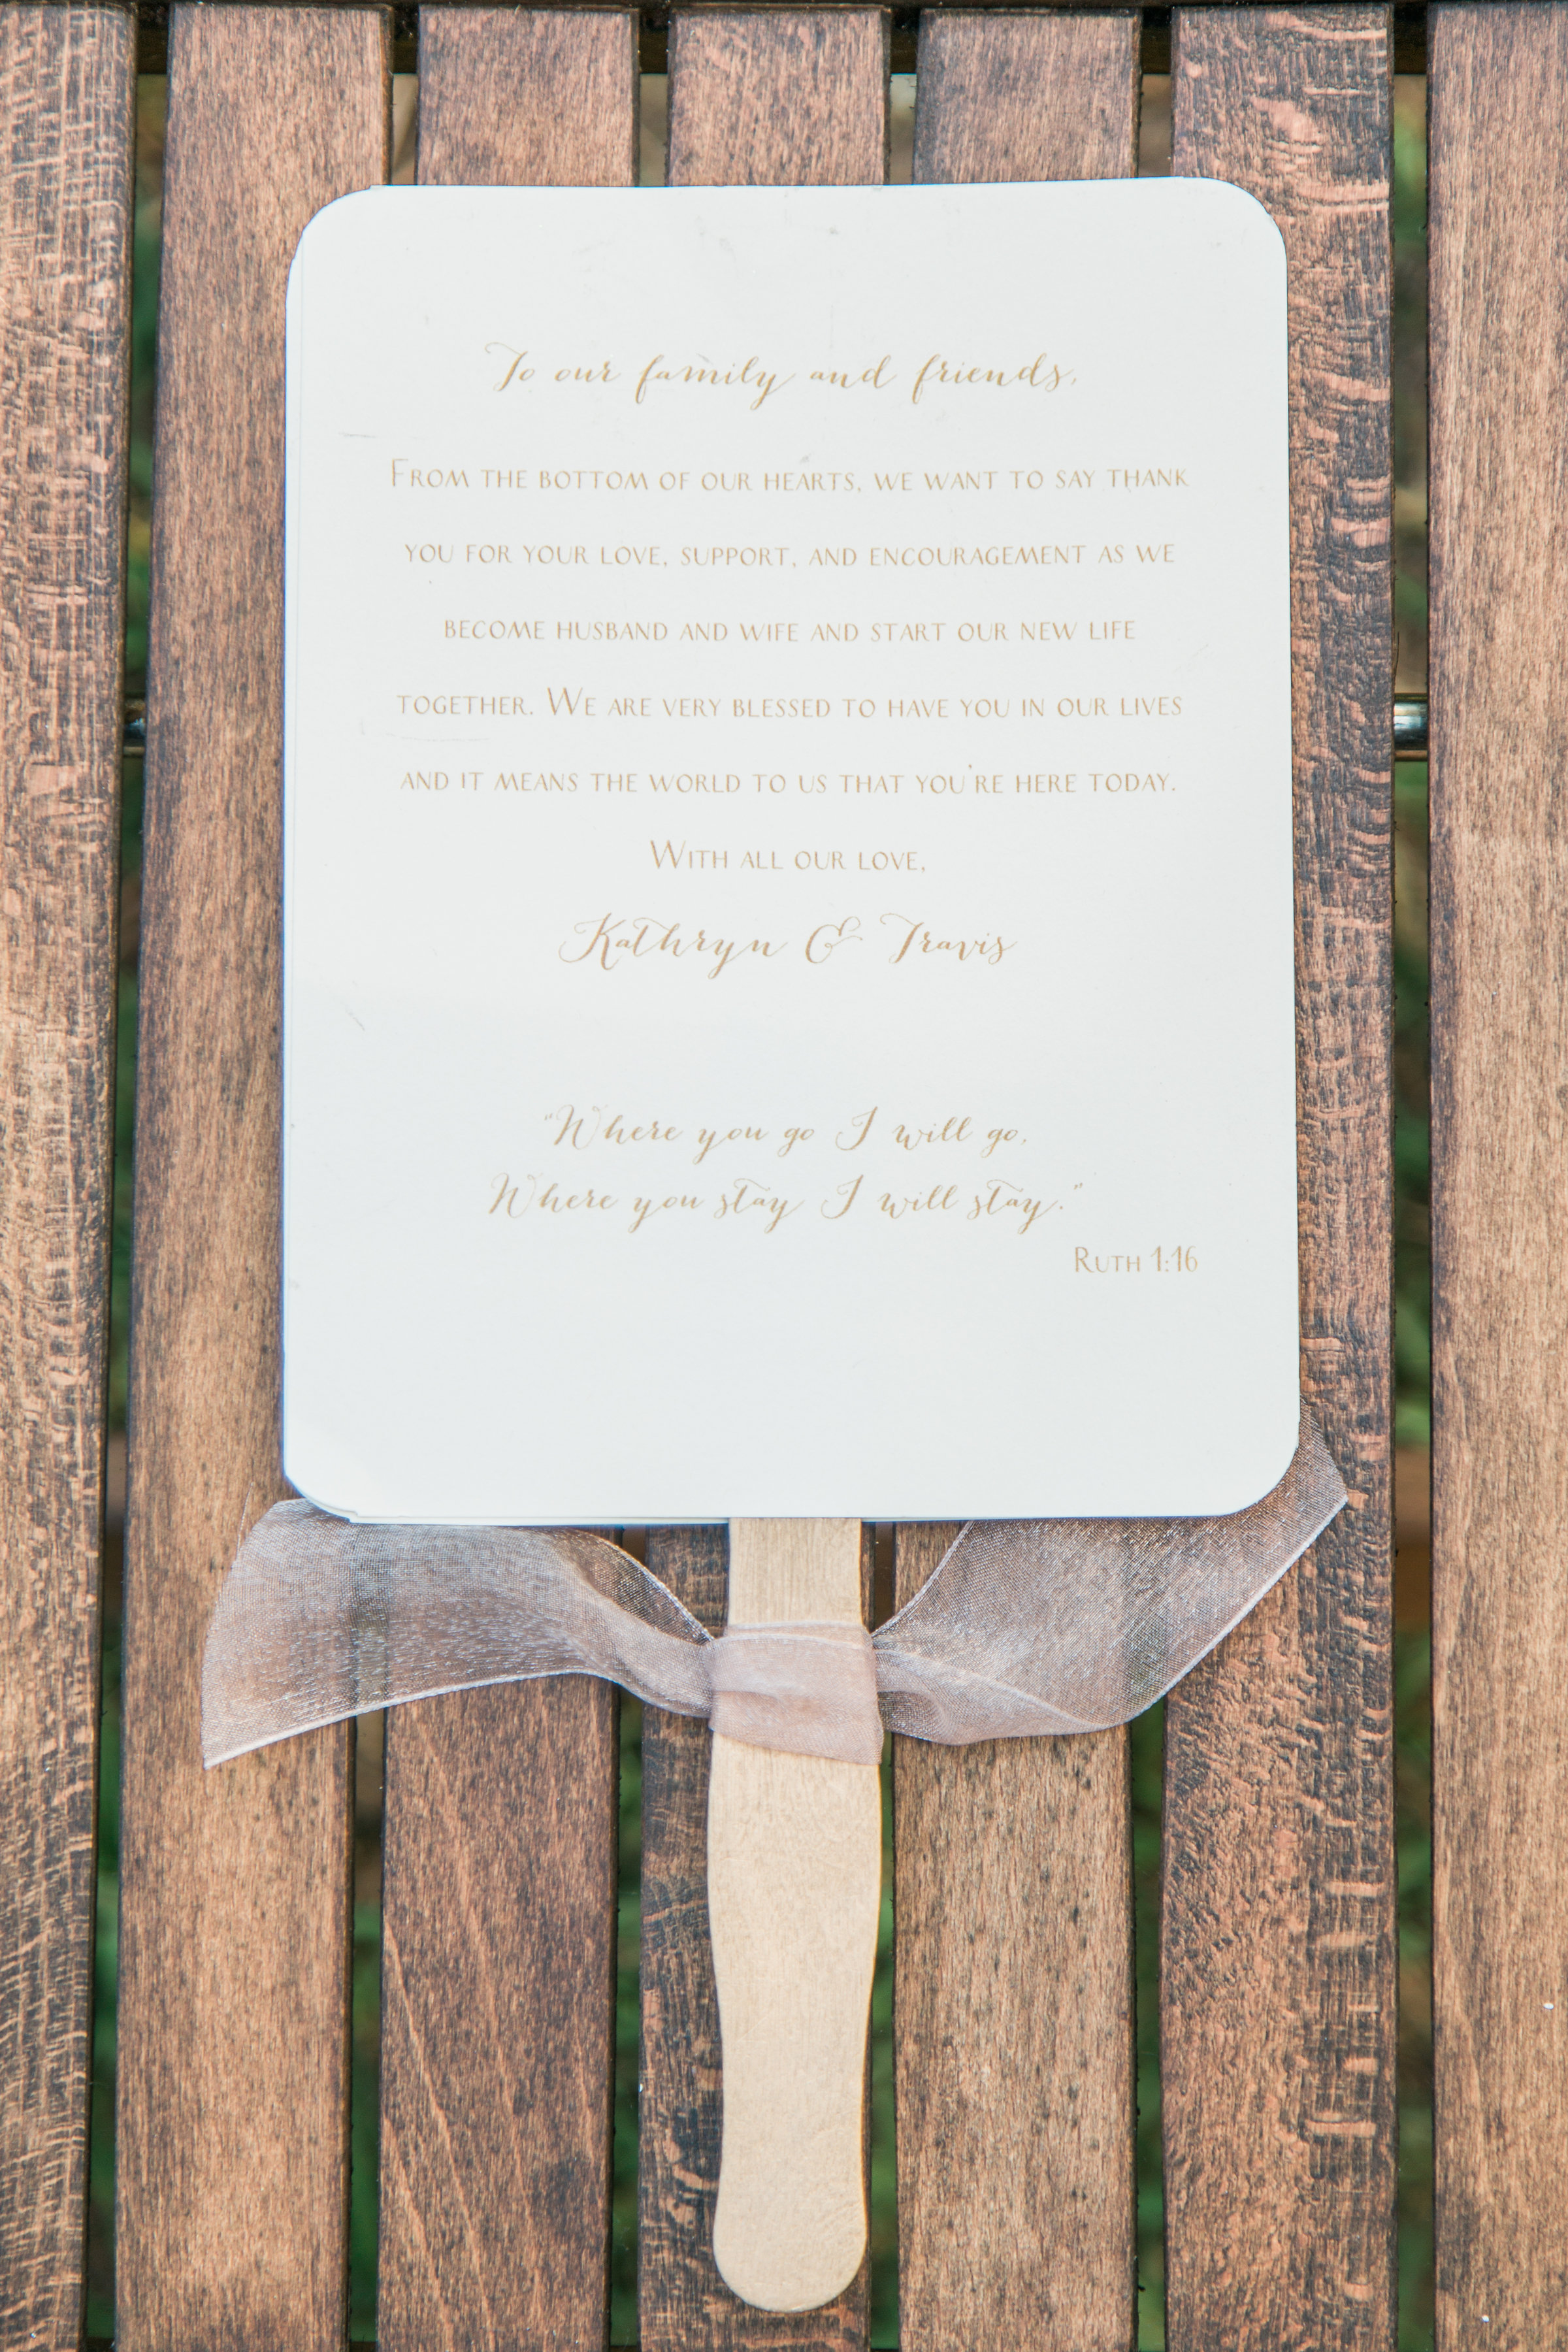 To our family and friends,
From the bottom of our hearts, we want to say thank
you for your love, support, and encouragement as we
become husband and wife and start our new life
together. We are very blessed to have you in our lives
and it means the world to us that you're here today.
With all our love,
Kathryn & Travis
"Where you go I will go,
Where you stay I will stay."
Ruth 1:16